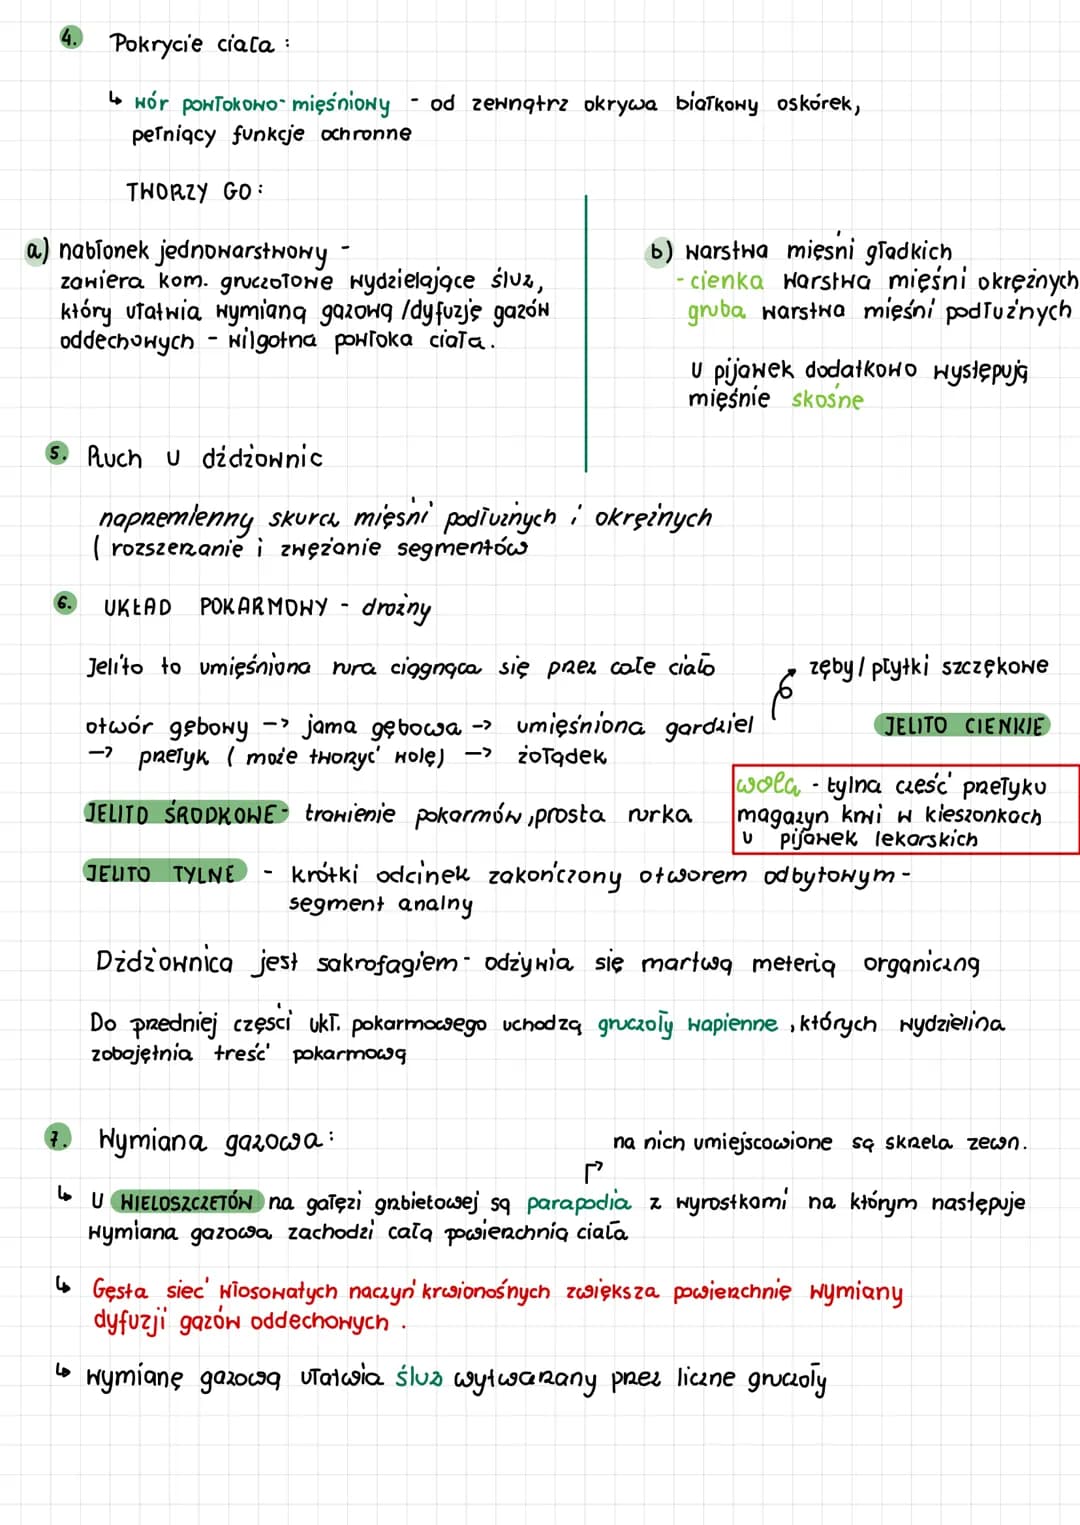 4. Pokrycie ciała :
↳ wór powłokowo-mięśniowy - od zewnątrz okrywa białkowy oskórek,
pełniący funkcje ochronne
TWORZY GO :
a) nabłonek jednowarstwowy -
zawiera kom. gruczołowe wydzielające śluz,
który ułatwia wymianą gazową /dyfuzję gazów
oddechowych - wilgotna powłoka ciała.
b) warstwa mięśni gładkich
- cienka warstwa mięśni okrężnych
gruba warstwa mięśni podłużnych
U pijawek dodatkowo występują
mięśnie skośne
5. Ruch u dżdżownic
naprzemienny skurcz mięśni podłużnych i okrężnych
( rozszerzanie i zwężanie segmentów
6. UKŁAD POKARMOWY - drożny
Jelito to umięśniona rura ciągnąca się przez całe ciało
zęby / płytki szczękowe
otwór gębowy -> jama gębowa -> umięśniona gardziel
-> przełyk ( może tworzyć wolę) -> żołądek
JELITO CIENKIE
wola - tylna cześć przełyku
magazyn krwi w kieszonkach
u pijawek lekarskich
JELITO ŚRODKOWE - trawienie pokarmów, prosta rurka
JELITO TYLNE - krótki odcinek zakończony otworem odbytowym -
segment analny
Dżdżownica jest sakrofagiem - odżywia się martwą meterią organiczną
Do przedniej części ukł. pokarmowego uchodzą gruczoły wapienne, których wydzielina
zobojętnia treść pokarmową
7. Wymiana gazowa :
na nich umiejscowione są skrzela zewn.
↳ U WIELOSZCZETÓW na gałęzi grzbietowej są parapodia z wyrostkami na którym następuje
wymiana gazowa zachodzi całą powierzchnią ciała
↳ Gęsta sieć włosowatych naczyń krwionośnych zwiększa powierzchnię wymiany
dyfuzji gazów oddechowych.
↳ wymianę gazową ułatwia śluz wytwarzany przez liczne gruczoły